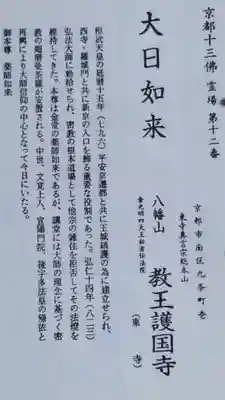 京都十三佛霊場第十二番
大日如来
京都市南区九条町壱
東寺真言宗総本山
八幡山
教王護国寺
(東寺)
金光明四天王教王護国寺秘密伝法院
桓武天皇の延暦十五年(七九六)平安京遷都と共に王城鎮護の為に建立せられ、
西寺・羅城門と共に新京の入口を飾る重要な役割であった。弘仁十四年(八二三)
弘法大師に勅給せられ、密教の根本道場として他宗の雑住を拒否してその法燈を
維持してきた。本尊は金堂の薬師如来であるが、講堂には大師の理念に基づく密
教の羯磨曼荼羅が安置される。中世、文覚上人、宣陽門院、後宇多法皇の帰依と
再興により大師信仰の中心となって今日にいたる。
御本尊 薬師如来